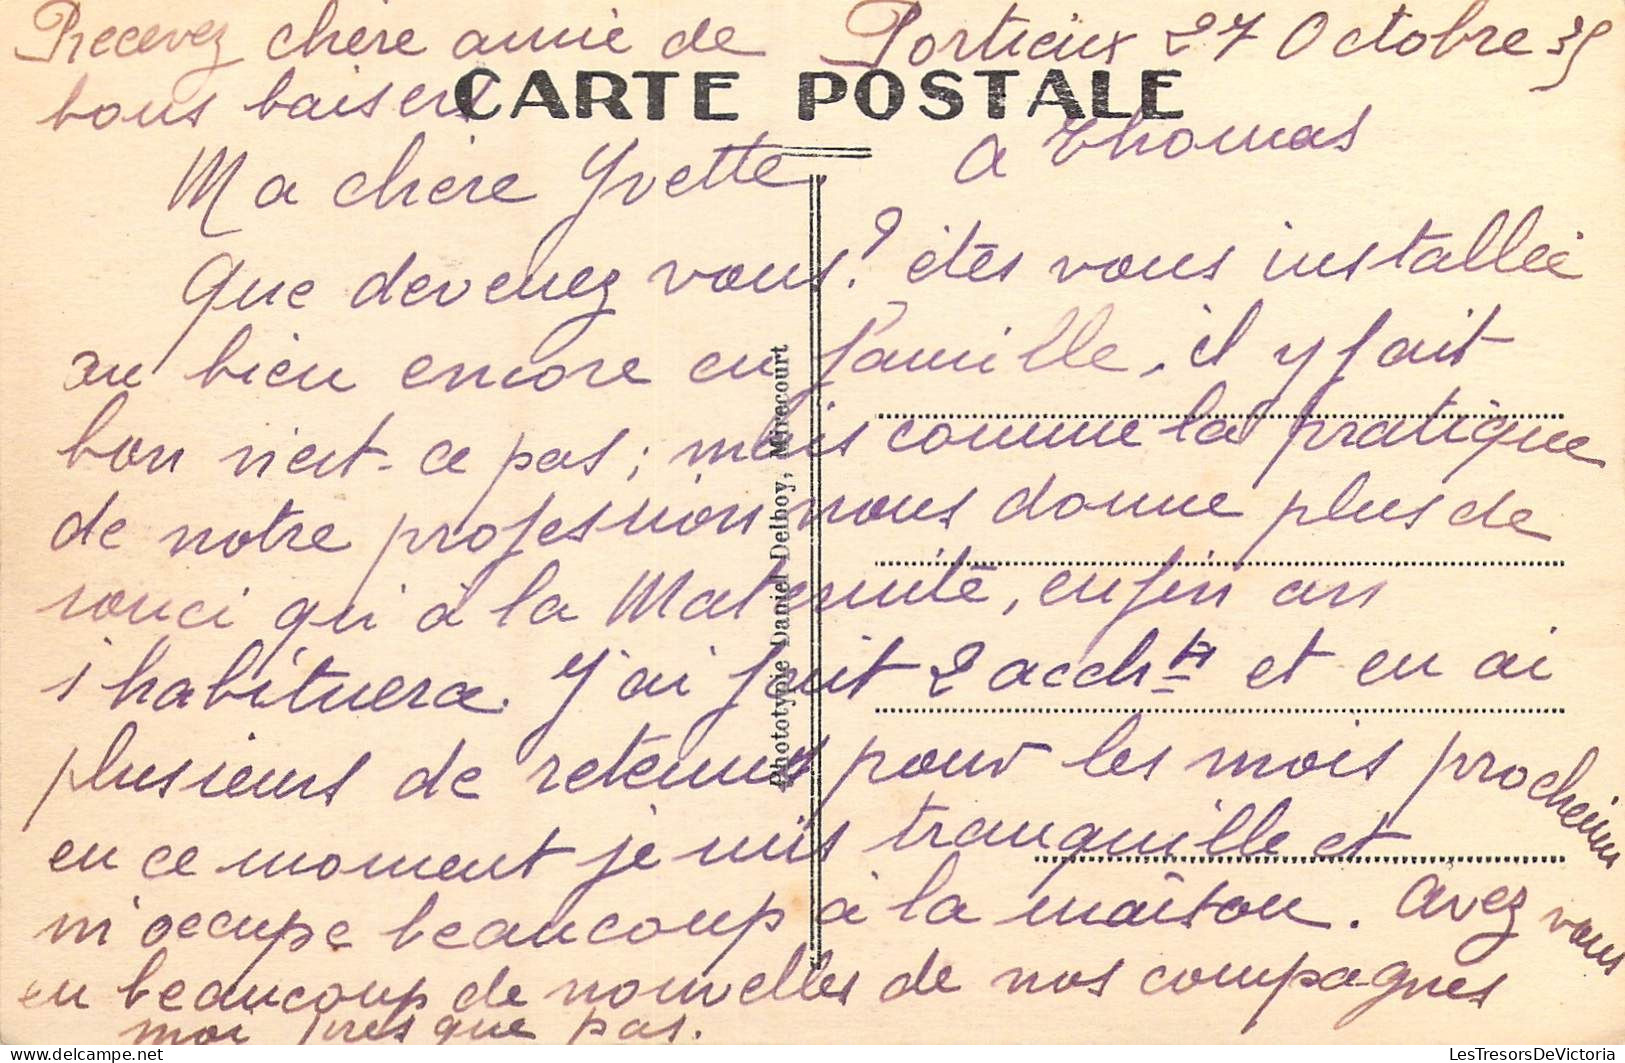 Recevez chère amie de
bons baisers
Portieux 27 Octobre 35
CARTE POSTALE
A Thomas
Ma chère Yvette
Que devenez vous? êtes vous installée
ou bien encore en famille, il y fait
bon n'est-ce pas; mais comme la pratique
de notre profession nous donne plus de
souci qu'à la Maternité, enfin on
s'habituera. J'ai fait 2 accht et en ai
plusieurs de retenus pour les mois prochains
en ce moment je suis tranquille et
m'occupe beaucoup à la maison. Avez vous
eu beaucoup de nouvelles de nos compagnes
moi presque pas.
Phototypie Daniel Delboy, Mirecourt
LesTresorsDeVictoria